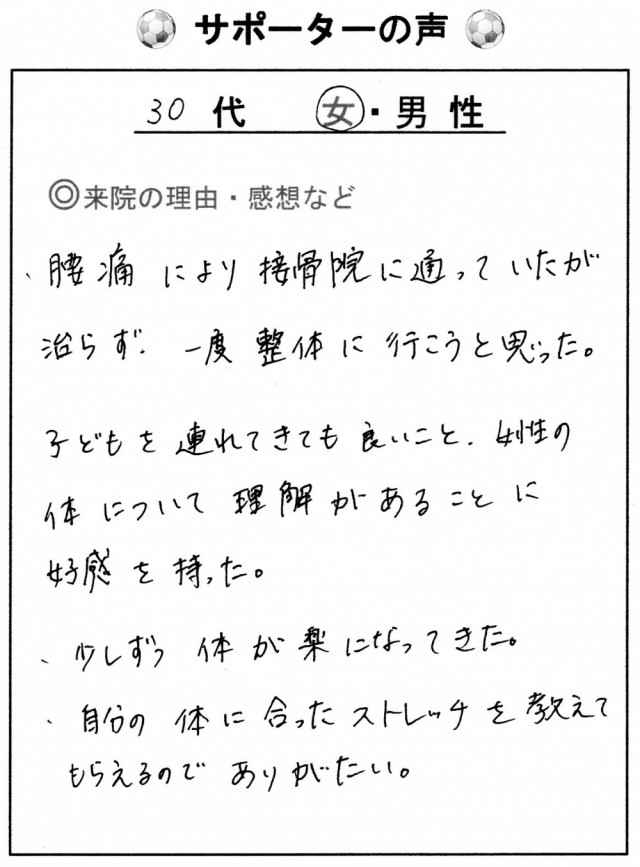 サポーターの声
30代 女・男性
◎来院の理由・感想など
、腰痛により接骨院に通っていたが
治らず、一度整体に行こうと思った。
子どもを連れてきても良いこと、女性の
体について理解があることに
好感を持った。
、少しずつ体が楽になってきた。
、自分の体に合ったストレッチを教えて
もらえるのでありがたい。